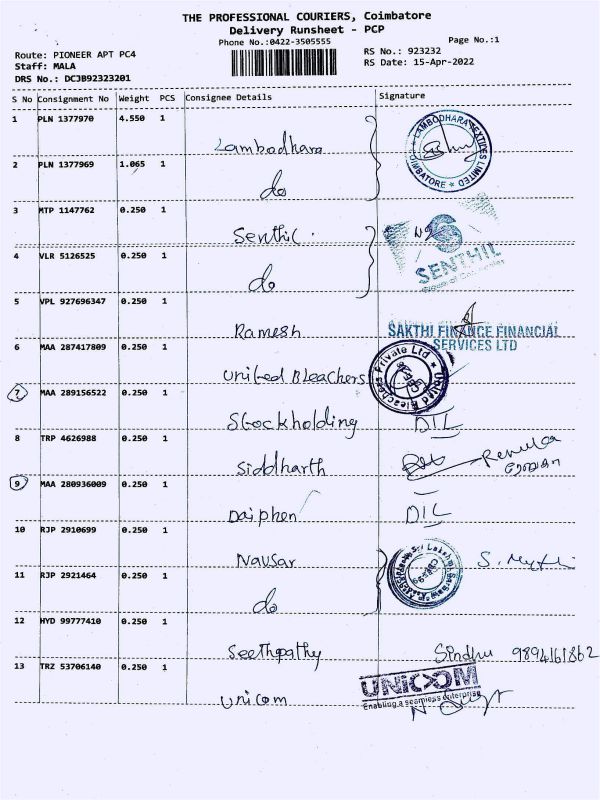 THE PROFESSIONAL COURIERS, Coimbatore
Delivery Runsheet - PCP
Phone No.:0422-3505555
Page No.:1
Route: PIONEER APT PC4
Staff: MALA
DRS No.: DCJB92323201
RS No.: 923232
RS Date: 15-Apr-2022
S No Consignment No Weight PCS Consignee Details Signature
1 PLN 1377970 4.550 1
Lambodhara
LAMBODHARA TEXTILES LIMITED
COIMBATORE
2 PLN 1377969 1.065 1
do
3 MTP 1147762 0.250 1
Senthil
SENTHIL
4 VLR 5126525 0.250 1
do
5 VPL 927696347 0.250 1
Ramesh
SAKTHI FINANCE FINANCIAL
SERVICES LTD
6 MAA 287417809 0.250 1
United Bleachers
United Bleachers Private Ltd
7 MAA 289156522 0.250 1
Stockholding DIL
8 TRP 4626988 0.250 1
Siddharth
9 MAA 280936009 0.250 1
Daiphen DIL
10 RJP 2910699 0.250 1
Navsar
11 RJP 2921464 0.250 1
do
12 HYD 99777410 0.250 1
Seethpathy Sindhu 9894161862
13 TRZ 53706140 0.250 1
Unicom
UNICOM
Enabling a seamless enterprise